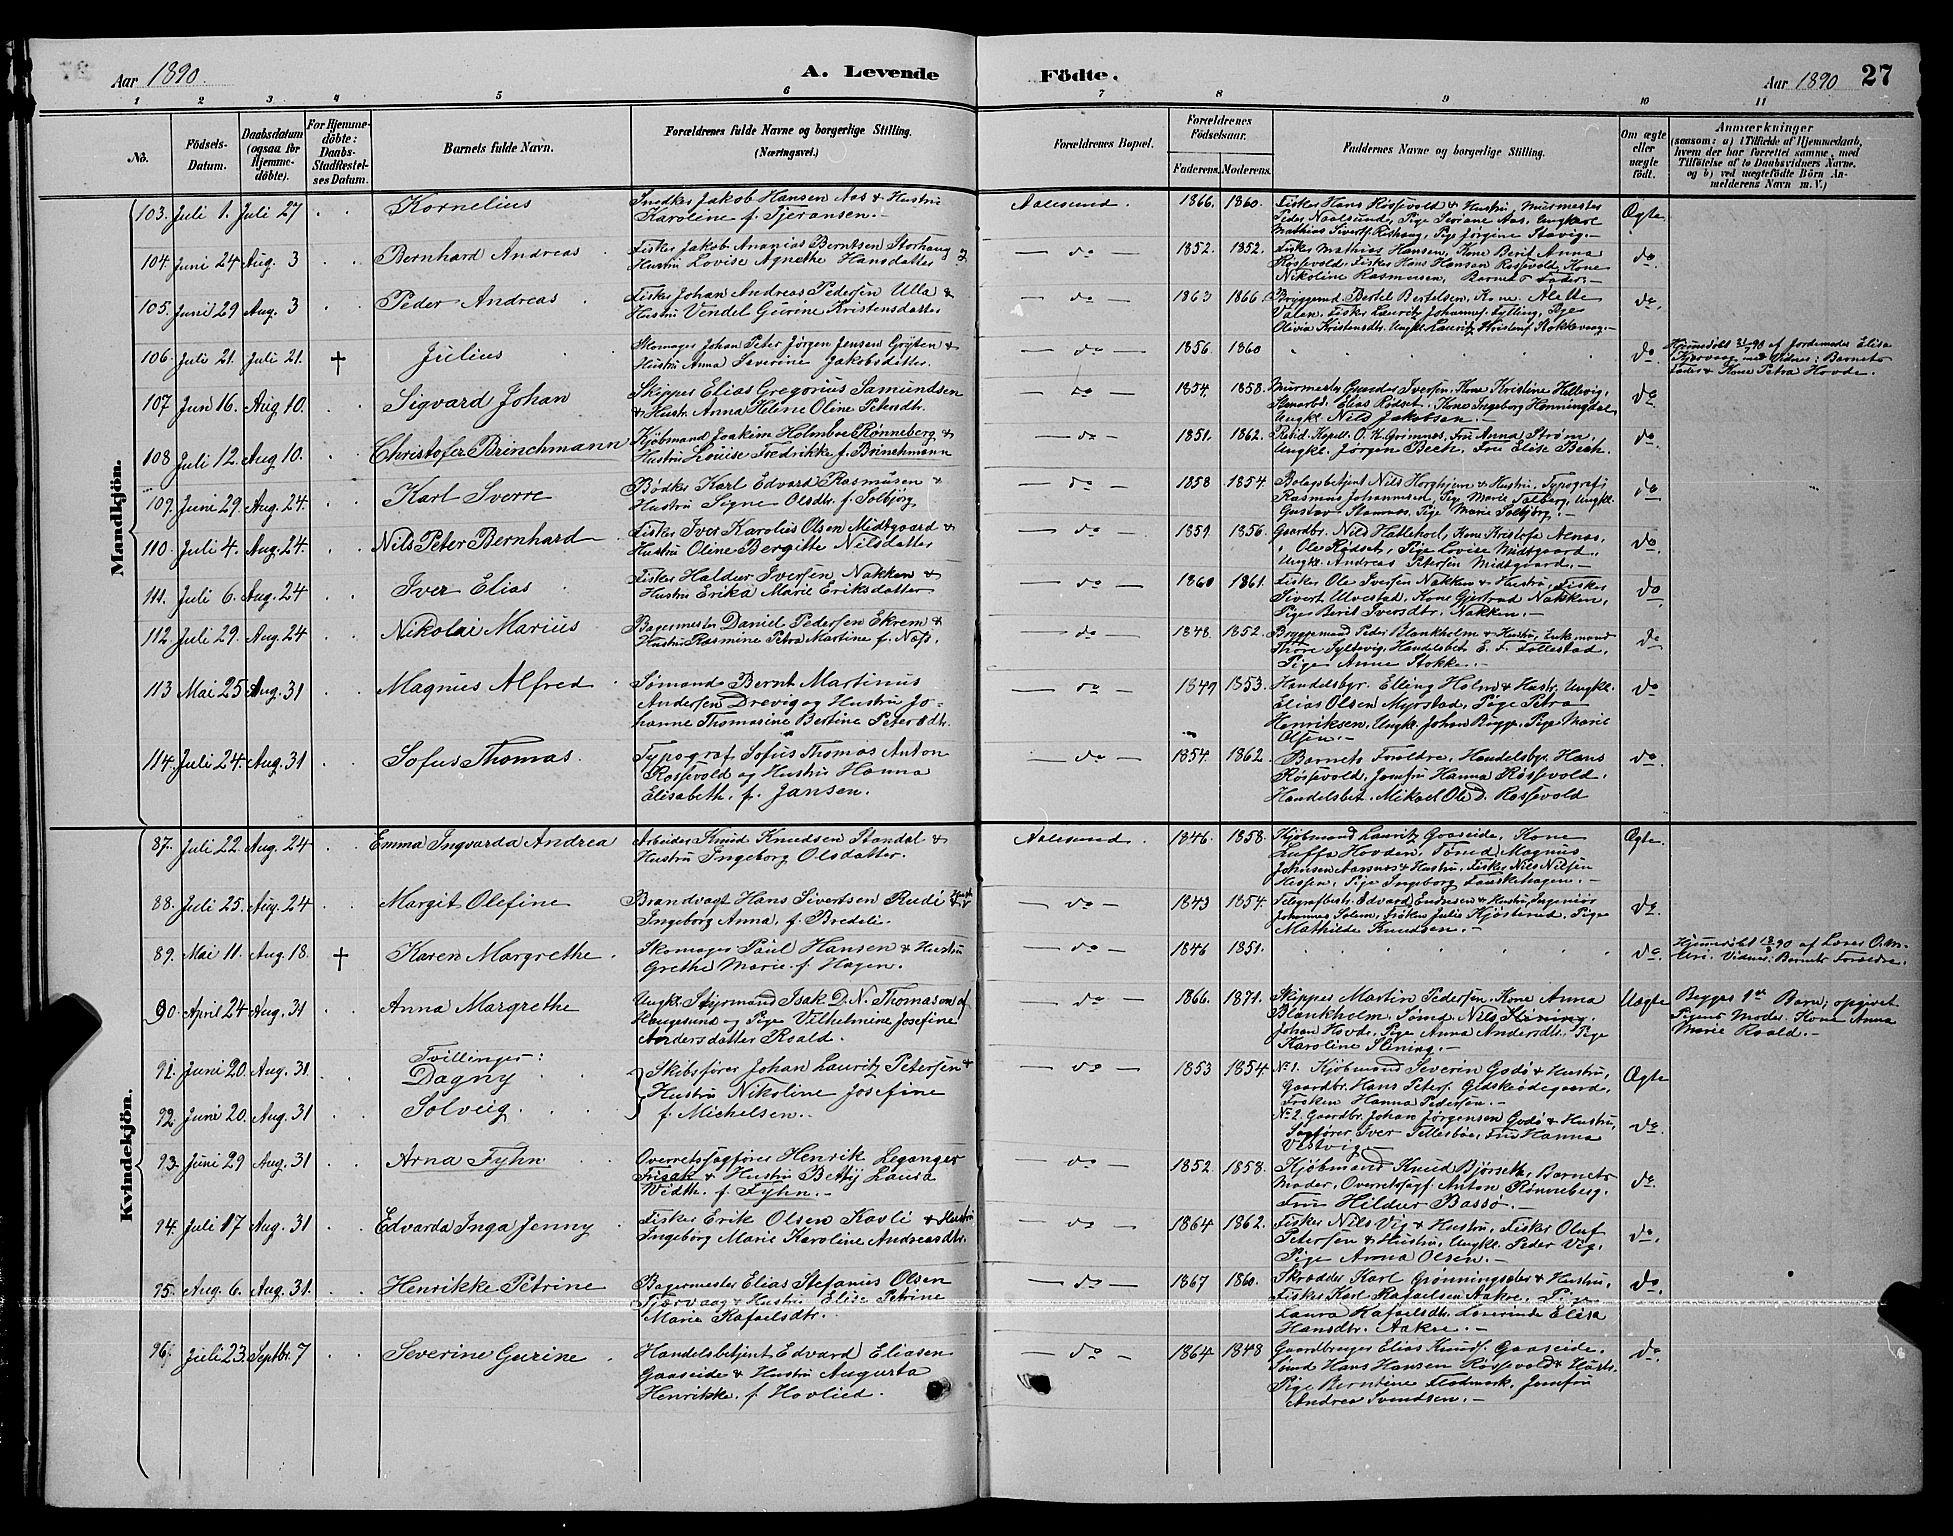 Aar 1890.
A. Levende Födte.
Aar 1890
27
1 2 3 4 5 6 7 8 9 10 11
No.
Födsels-Datum.
Daabsdatum (ogsaa for Hjemmedöbte).
For Hjemmedöbte: Daabs-Stadfæstelses Datum.
Barnets fulde Navn.
Forældrenes fulde Navne og borgerlige Stilling. (Næringsvei.)
Forældrenes Bopæl.
Forældrenes Födselsaar.
Faderens. Moderens.
Faddernes Navne og borgerlige Stilling.
Om ægte eller uægte födt.
Anmærkninger
(saasom: a) i Tilfælde af Hjemmedaab, hvem der har forrettet samme, med Tilföielse af to Daabsvidners Navne, og b) ved uægtefödte Börn Anmelderens Navn m. V.)
Mandkjön.
103. Juli 1. Juli 27 Kornelius
Snedker Jakob Hansen Aas & Hustru
Karoline f. Tjeransen.
Aalesund. 1866. 1860.
Fisker Hans Rössevold & Hustru, Murmester
Peder Naalsund, Pige Seriane Aas, Ungkarl
Mathias Siverts. Rishaug, Pige Jørgine Stavig.
Ægte
104. Juni 24 Aug. 3 Bernhard Andreas
Fisker Jakob Ananias Berntsen Storhaug &
Hustru Lovise Agnethe Hansdatter
do 1852. 1852.
Fisker Mathias Hansen, Kone Berit Anna
Rössevold, Fisker Hans Hansen Rossevold, Kone
Nikoline Rasmussen, Barnets Fader.
do.
105. Juni 29 Aug. 3 Peder Andreas
Fisker Johan Andreas Pedersen Ulla &
Hustru Vendel Gurine Kristensdatter
do 1863 1866.
Bryggemd. Bertel Bertelsen, Kone Alette
Valen, Fisker Lauritz Johannes. Fylling, Pige
Olivia Kristensdtr. Ungk. Lauritz Kristens. Rokkevaag.
do
106. Juli 21. Juli 21. † Julius
Skomager Johan Peter Jörgen Jensen Gröften &
Hustru Anna Severine Jakobsdatter.
do 1856. 1860
do
Hjemmedöbt 21/7 90 af Jordemoder Elisa
Kjervaag med Vidner: Barnets
Fader & Kone Petra Hovde.
107 Juni 16. Aug 10. Sigvard Johan
Skipper Elias Gregorius Samundsen
& Hustr. Anna Heline Oline Petersdtr.
do 1854. 1858.
Murmester Gunder Iversen, Kone Kristine Hellevig,
Stenarbd. Elias Rödset, Kone Ingeborg Honningdal
Ungk. Nils Jakobsen
do
108 Juli 12. Aug 10. Christofer Brinchmann
Kjöbmand Joakim Holmboe Rønneberg &
Hustru Louise Fredrikke f. Brinchmann
do 1851. 1862.
Resid. Kapell. O. K. Grimnes, Fru Anna Ström,
Ungk. Jörgen Bech, Fru Elise Bech.
do.
109. Juni 29. Aug. 24. Karl Sverre
Bødker Karl Edvard Rasmusen &
Hustru Signe Olsdtr. f. Solbjörg
do 1858 1854.
Bolagsbetjent Nils Horghjem & Hustru, Typograf
Rasmus Johannesed, Pige Marie Solberg, Ungk.
Gustav Stamnes, Pige Marie Solbjörg.
do
110. Juli 4. Aug. 24. Nils Peter Bernhard
Fisker Iver Karolius Olsen Midtgaard &
Hustru Oline Bergitte Nilsdatter
do 1859 1856.
Gaardbr. Nils Hatlehoel, Kone Kristofa Aenes,
Ole Rödset, Pige Lovise Midtgaard,
Ungk. Andreas Petersen Midtgaard.
do
111. Juli 6. Aug. 24 Iver Elias
Fisker Haldur Iversen Nakken &
Hustru Erika Marie Eriksdatter
do 1860 1861.
Fisker Ole Iversen Nakken & Hustru, Fisker
Sivert Ulvestad, Kone Gjertrud Nakken,
Pige Berit Iversdtr. Nakken.
do
112. Juli 29. Aug. 24 Nikolai Marius
Bagermester Daniel Pedersen Ekrem &
Hustru Rasmine Petra Martine f. Næss.
do 1848. 1852.
Bryggemand Peder Blankholm & Hustru, Enkemand
Thore Syltevig, Handelsbet. E. F. Follestad,
Pige Anne Stokke.
do
113 Mai 25 Aug. 31 Magnus Alfred
Sømand Bernt Martinus
Andersen Drevig og Hustru Jo-
hanne Thomasine Bertine Petersdtr.
do 1849 1853.
Handelsbgr. Elling Holm & Hustr. Ungk.
Elias Olsen Myrstad, Pige Petra
Henriksen, Ungk. Johan Bugge, Pige Marie
Olsen.
do
114. Juli 24. Aug. 31 Sofus Thomas.
Typograf Sofus Thomas Anton
Rossevold og Hustru Hanna
Elisabeth f. Jansen.
do 1854. 1862.
Barnets Foreldre, Handelsbgr. Hans
Rössevold, Jomfru Hanna Rössevold,
Handelsbet. Mikael Ole D. Rossevold
do.
Kvindekjön.
87. Juli 22. Aug. 24 Emma Ingvarda Andrea
Arbeider Knud Knudsen Standal &
Hustru Ingeborg Olsdatter.
Aalesund. 1846. 1858.
Kjöbmand Lauritz Gaaseide, Kone
Luffa Hovden, Tömd. Magnus
Johnsen Aarsnes & Hustru, Fisker Nils Nilsen
Hessen, Pige Ingeborg Fauskehagen.
Ægte.
88. Juli 25. Aug. 24 Margit Olefine
Brandvagt Hans Sivertsen Rudi & Hustr
Ingeborg Anna, f. Bredeli.
do 1843 1854.
Telegrafbest. Edvard Endresen & Hustru, Ingeniör
Johannes Solem, Fröken Julie Kjöstrud, Pige
Mathilde Knudsen.
do.
89. Mai 11. Aug. 18. † Karen Margrethe.
Skomager Paul Hansen & Hustru
Grethe Marie f. Hagen.
do 1846 1851.
do.
Hjemmedöbt 18/8 90 af Lærer O. M.
Vidner: Barnets Foreldre.
90. April 24 Aug. 31 Anna Margrethe
Ungk. Styrmand Isak D. N. Thomasen af
Haugesund og Pige Vilhelmine Josefine
Andersdatter Roald.
do 1866. 1871.
Skipper Martin Pedersen, Kone Anna
Blankholm, Sömd. Nils Slining,
Johan Hovde, Pige Anna Andersdtr. Pige
Karoline Slining.
Uægte
Begges 1ste Barn; opgivet
Pigens Moder Kone Anna
Marie Roald.
Tvillinger:
91. Juni 20. Aug. 31 Dagny
92 Juni 20. Aug. 31 Solveig.
Skibsfører Johan Lauritz Petersen &
Hustru Nikoline Josefine
f. Michelsen.
do 1853 1854.
No 1. Kjöbmand Severin Godö & Hustru,
Gaardbr. Hans Peters. Gidskeödegaard,
Fröken Hanna Pedersen.
No 2. Gaardbr. Johan Jörgensen Godö & Hustru,
Sagförer Iver Tellesböe, Fru Hanna
Vestvig
Ægte
do.
93. Juni 29 Aug. 31 Arna Fyhn
Overretssagfører Henrik Leganger
Frisak & Hustru Betty Laura
Width. f. Fyhn.
do 1852. 1858.
Kjöbmand Knud Bjørseth, Barnets
Moder, Overetssagf. Anton Rönneberg,
Fru Hildur Bassö.
do.
94. Juli 17 Aug. 31 Edvarda Inga Jenny
Fisker Erik Olsen Kavli & Hustru
Ingeborg Marie Karoline Andreasdtr.
do 1864 1862.
Fisker Nils Vig & Hustru, Fisker Oluf
Petersen & Hustru, Ungk. Peder Vig,
Pige Anna Olsen.
do.
95. Aug. 6. Aug. 31. Henrikke Petrine
Bagermester Elias Stefanus Olsen
Tjervaag & Hustru Elise Petrine
Marie Rafaelsdtr.
do 1867 1860.
Skrædder Karl Grönningsæter & Hustru,
Fisker Karl Rafaelsen Aakre, Pige
Laura Rafaelsdtr. Lærerinde Elisa
Hansdtr. Aakre.
do.
96. Juli 23. Septbr. 7 Severine Gurine
Handelsbetjent Edvard Eliasen
Gaaseide & Hustru Augusta
Henrikke, f. Hovlied.
do 1864 1848
Gaardbruger Elias Knuds. Gaaseide,
Sömd. Hans Hansen Rössevold & Hustr.
Pige Berntine Flodmark, Jomfru
Andrea Svendsen.
do.